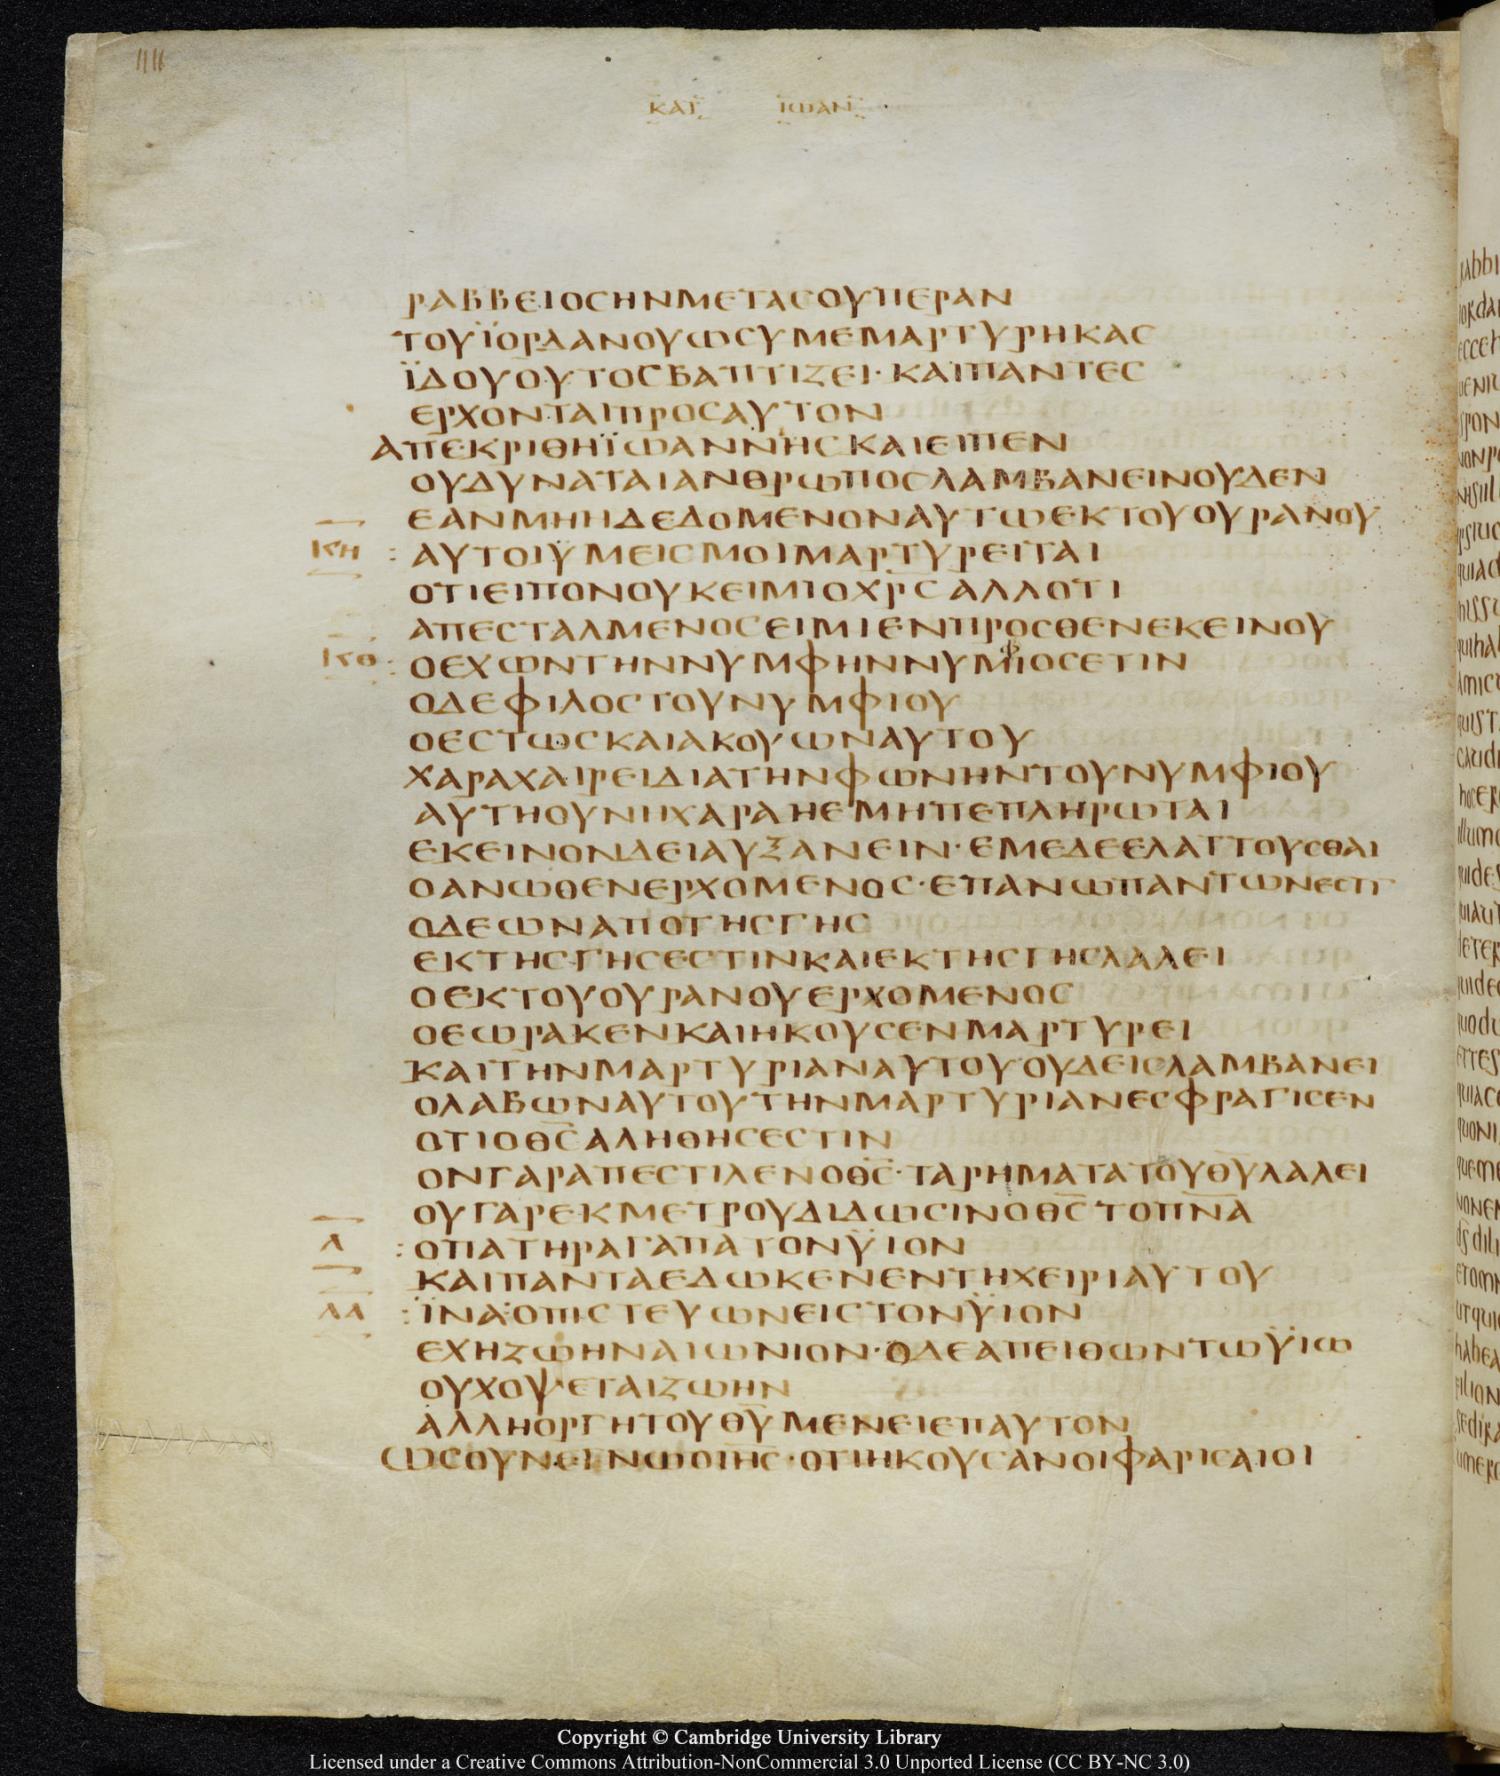 ΚΑΤ ΙΩΑΝ
ΡΑΒΒΕΙΟϹΗΝΜΕΤΑϹΟΥΠΕΡΑΝ
ΤΟΥΪΟΡΔΑΝΟΥΩϹΥΜΕΜΑΡΤΥΡΗΚΑϹ
ΪΔΟΥΟΥΤΟϹΒΑΠΤΙΖΕΙ·ΚΑΙΠΑΝΤΕϹ
ΕΡΧΟΝΤΑΙΠΡΟϹΑΥΤΟΝ
ΑΠΕΚΡΙΘΗΪΩΑΝΝΗϹΚΑΙΕΙΠΕΝ
ΟΥΔΥΝΑΤΑΙΑΝΘΡΩΠΟϹΛΑΜΒΑΝΕΙΝΟΥΔΕΝ
ΕΑΝΜΗΗΔΕΔΟΜΕΝΟΝΑΥΤΩΕΚΤΟΥΟΥΡΑΝΟΥ
ΚΗ :ΑΥΤΟΙΫΜΕΙϹΜΟΙΜΑΡΤΥΡΕΙΤΑΙ
ΟΤΙΕΙΠΟΝΟΥΚΕΙΜΙΟΧΡϹ̅ΑΛΛΟΤΙ
ΑΠΕϹΤΑΛΜΕΝΟϹΕΙΜΙΕΝΠΡΟϹΘΕΝΕΚΕΙΝΟΥ
ΚΘ :ΟΕΧΩΝΤΗΝΝΥΜΦΗΝΝΥΜΦΙΟϹΕΤΙΝ
ΟΔΕΦΙΛΟϹΤΟΥΝΥΜΦΙΟΥ
ΟΕϹΤΩϹΚΑΙΑΚΟΥΩΝΑΥΤΟΥ
ΧΑΡΑΧΑΙΡΕΙΔΙΑΤΗΝΦΩΝΗΝΤΟΥΝΥΜΦΙΟΥ
ΑΥΤΗΟΥΝΗΧΑΡΑΗΕΜΗΠΕΠΛΗΡΩΤΑΙ
ΕΚΕΙΝΟΝΔΕΙΑΥΞΑΝΕΙΝ·ΕΜΕΔΕΕΛΑΤΤΟΥϹΘΑΙ
ΟΑΝΩΘΕΝΕΡΧΟΜΕΝΟϹ·ΕΠΑΝΩΠΑΝΤΩΝΕϹΤΙ
ΟΔΕΩΝΑΠΟΤΗϹΓΗϹ
ΕΚΤΗϹΓΗϹΕϹΤΙΝΚΑΙΕΚΤΗϹΓΗϹΛΑΛΕΙ
ΟΕΚΤΟΥΟΥΡΑΝΟΥΕΡΧΟΜΕΝΟϹ
ΟΕΩΡΑΚΕΝΚΑΙΗΚΟΥϹΕΝΜΑΡΤΥΡΕΙ
ΚΑΙΤΗΝΜΑΡΤΥΡΙΑΝΑΥΤΟΥΟΥΔΕΙϹΛΑΜΒΑΝΕΙ
ΟΛΑΒΩΝΑΥΤΟΥΤΗΝΜΑΡΤΥΡΙΑΝΕϹΦΡΑΓΙϹΕΝ
ΟΤΙΟΘϹ̅ΑΛΗΘΗϹΕϹΤΙΝ
ΟΝΓΑΡΑΠΕϹΤΙΛΕΝΟΘϹ̅·ΤΑΡΗΜΑΤΑΤΟΥΘΥ̅ΛΑΛΕΙ
ΟΥΓΑΡΕΚΜΕΤΡΟΥΔΙΔΩϹΙΝΟΘϹ̅ΤΟΠΝΑ̅
Λ :ΟΠΑΤΗΡΑΓΑΠΑΤΟΝΫΙΟΝ
ΚΑΙΠΑΝΤΑΕΔΩΚΕΝΕΝΤΗΧΕΙΡΙΑΥΤΟΥ
ΛΑ :ΪΝΑ·ΟΠΙϹΤΕΥΩΝΕΙϹΤΟΝΫΙΟΝ
ΕΧΗΖΩΗΝΑΙΩΝΙΟΝ·ΟΔΕΑΠΕΙΘΩΝΤΩΫΙΩ
ΟΥΧΟΨΕΤΑΙΖΩΗΝ
ΑΛΛΗΟΡΓΗΤΟΥΘΥ̅ΜΕΝΕΙΕΠΑΥΤΟΝ
ΩϹΟΥΝΕΙΝΩΟΙΗϹ̅·ΟΤΙΗΚΟΥϹΑΝΟΙΦΑΡΙϹΑΙΟΙ
Copyright © Cambridge University Library
Licensed under a Creative Commons Attribution-NonCommercial 3.0 Unported License (CC BY-NC 3.0)